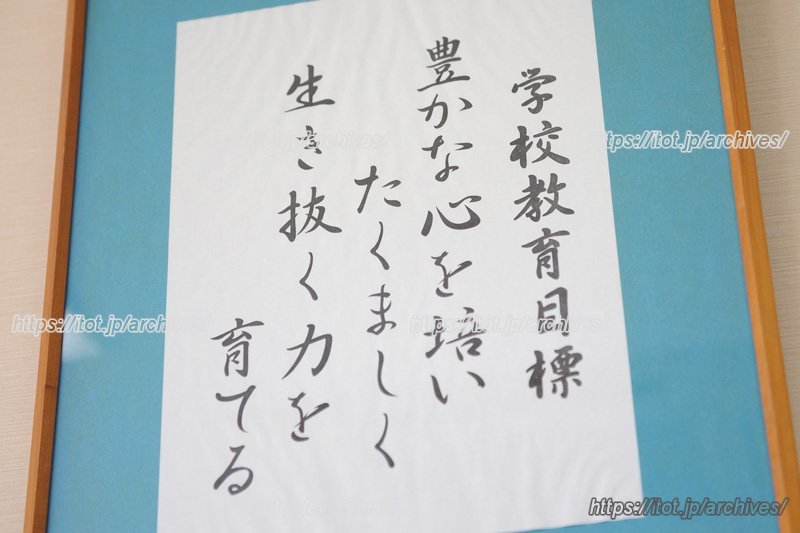 学校教育目標
豊かな心を培い
たくましく
生き抜く力を
育てる
https://itot.jp/archives/
ttps://itot.jp/archives/
https://itot.jp/archives/
https://itot.jp/archives/
https://itot.jp/archives/